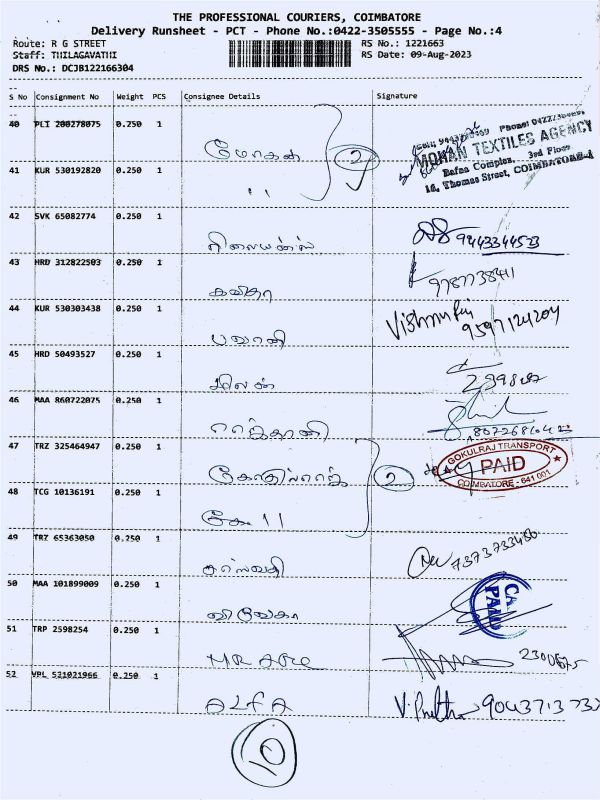 THE PROFESSIONAL COURIERS, COIMBATORE
Delivery Runsheet - PCT - Phone No.:0422-3505555 - Page No.:4
Route: R G STREET RS No.: 1221663
Staff: THILAGAVATHI RS Date: 09-Aug-2023
DRS No.: DCJB122166304
S No Consignment No Weight PCS Consignee Details Signature
40 PLI 200278075 0.250 1 மோகன் 2
MOHAN TEXTILES AGENCY
Rafaa Complex, 3rd Floor
16, Thomas Street, COIMBATORE-1
41 KUR 530192820 0.250 1 "
42 SVK 65082774 0.250 1 ரிலையன்ஸ் 9443344523
43 HRD 312822503 0.250 1 கவிதா
44 KUR 530303438 0.250 1 பவானி 9597124204
45 HRD 50493527 0.250 1 மிலன்
46 MAA 860722075 0.250 1
47 TRZ 325464947 0.250 1 கோகுல்ராஜ் 2
GOKULRAJ TRANSPORT
PAID
COIMBATORE - 641 001
48 TCG 10136191 0.250 1 கோ "
49 TRZ 65363050 0.250 1 சரஸ்வதி 7373733450
50 MAA 101899009 0.250 1
51 TRP 2598254 0.250 1
52 VPL 521021966 0.250 1 ALFA
10